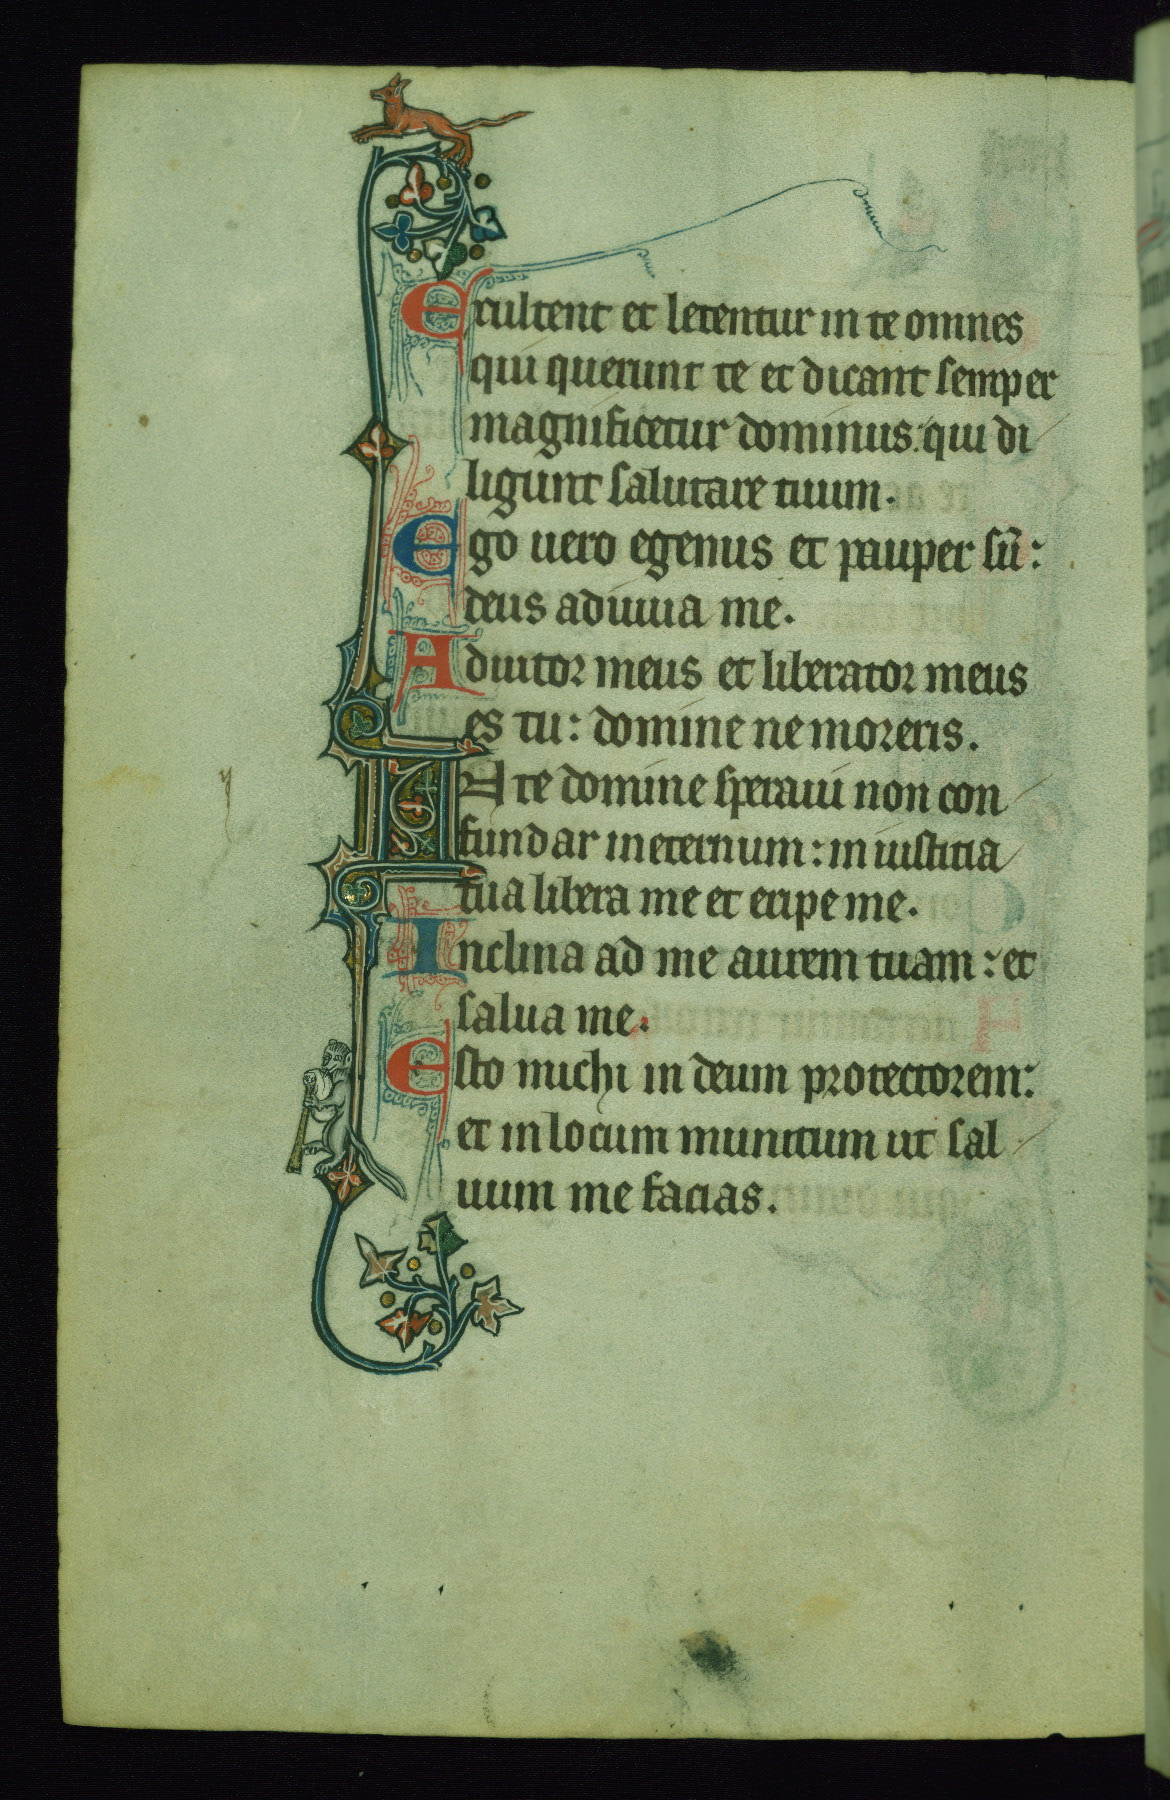 Exultent et letentur in te omnes
qui querunt te et dicant semper
magnificetur dominus: qui di
ligunt salutare tuum.
Ego uero egenus et pauper su̅:
deus adiuua me.
Adiutor meus et liberator meus
es tu: domine ne moreris.
IN te domine speraui non con
fundar in eternum: in iusticia
tua libera me et eripe me.
Inclina ad me aurem tuam: et
salua me.
Esto michi in deum protectorem:
et in locum munitum ut sal
uum me facias.